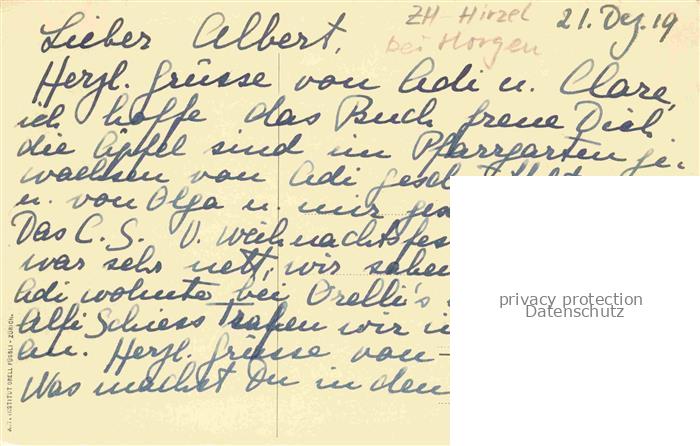 ZH-Hirzel 21. Dez. 19
bei Horgen
Lieber Albert,
Herzl. Grüsse von Adi u. Clare,
ich hoffe das Buch freue Dich
die Äpfel sind im Pfarrgarten ge-
wachsen von Adi
u. von Olga u. mir
Das C.S. V. Weihnachtsfes
war sehr nett, wir sahen
Adi wohnte bei Orelli's
Alfi Schiess trafen wir
an. Herzl. Grüsse von -
Was machst Du in den
INSTITUT ORELL FÜSSLI - ZÜRICH.
privacy protection
Datenschutz